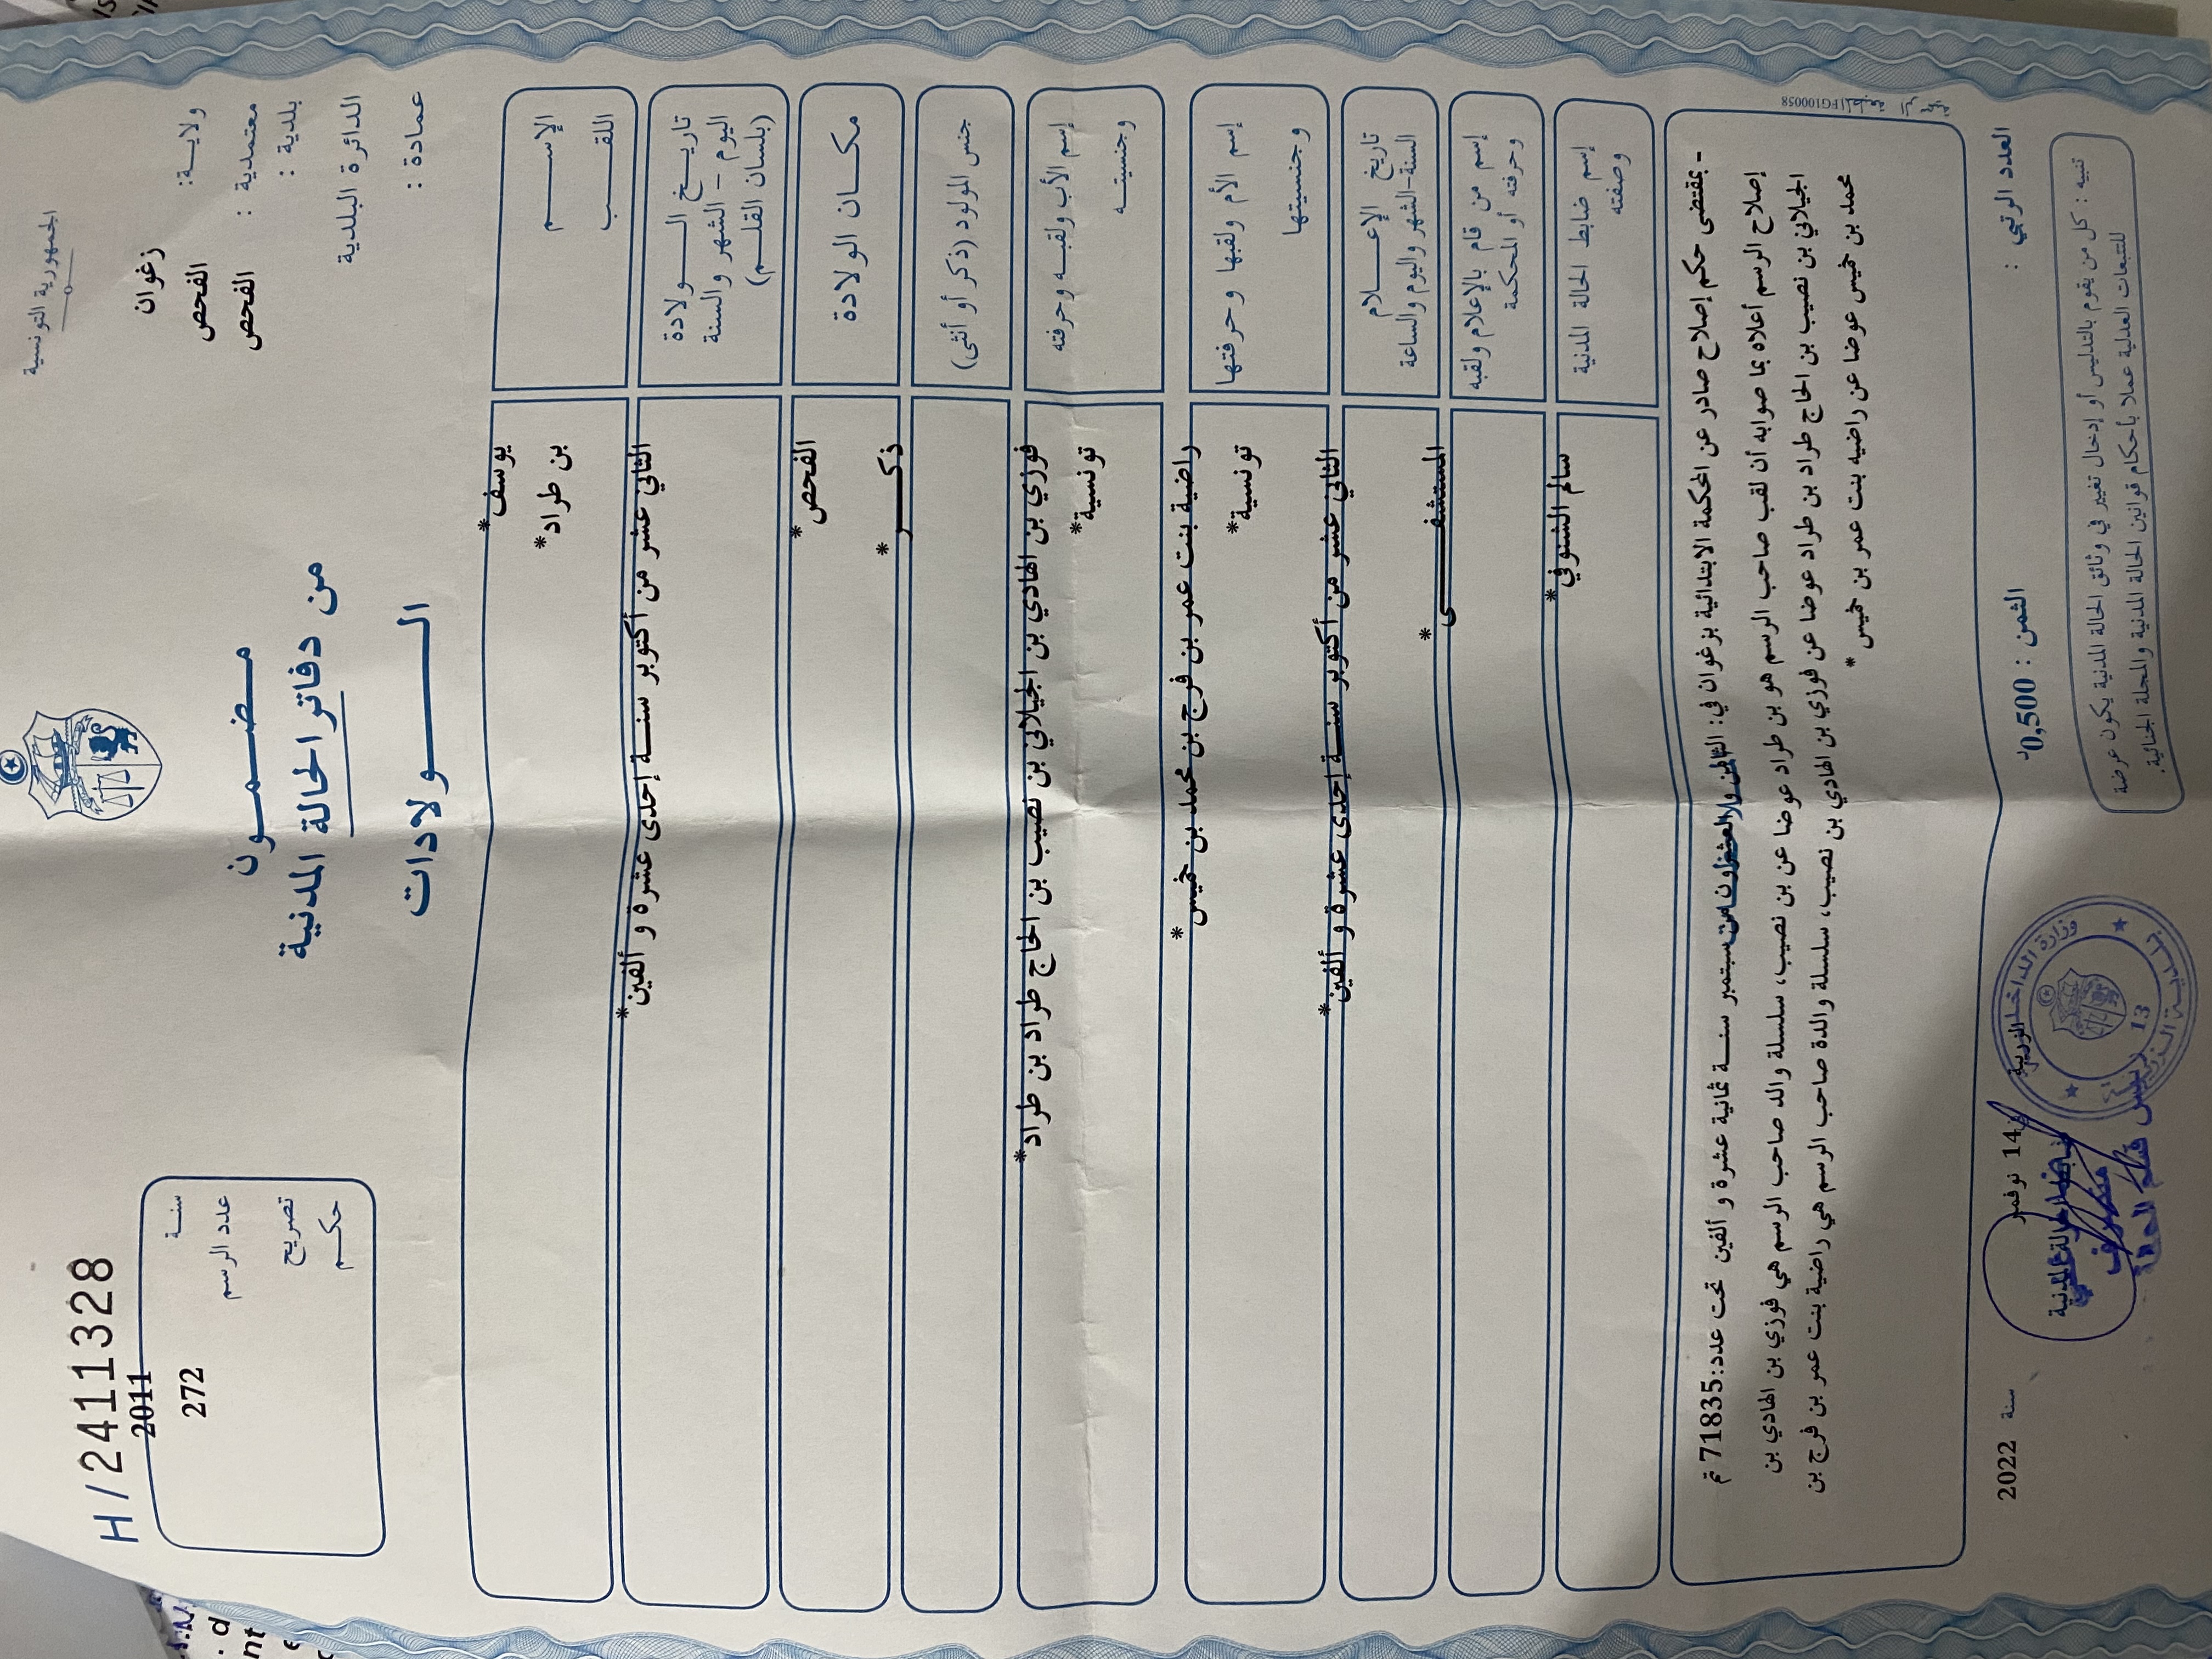 الجمهورية التونسية
H/2411328
ولايــة: زغوان
معتمدية : الفحص
بلدية : الفحص
الدائرة البلدية
عمادة :
مضمـــون
من دفاتر الحالة المدنية
الـــولادات
سنــة 2011
عدد الرسم 272
تصريح
حكـم
الإســـم يوسف*
اللقـــب بن طراد*
تاريــخ الــولادة
اليوم – الشهر والسنة
(بلسان القلــم)
الثاني عشر من أكتوبر سنــة إحدى عشرة و ألفين*
مكــان الولادة الفحص*
جنس المولود (ذكر أو أنثى) ذكـــر*
إسم الأب ولقبـه وحرفته فوزي بن الهادي بن الجيلالي بن نصيب بن الحاج طراد بن طراد*
وجنسيتــه تونسية*
إسم الأم ولقبها وحرفتها راضية بنت عمر بن فرج بن محمد بن خميس*
وجنسيتها تونسية*
تاريخ الإعـــلام
السنة-الشهر واليوم والساعة
الثاني عشر من أكتوبر سنــة إحدى عشرة و ألفين*
إسم من قام بالإعلام ولقبه
وحرفته أو المحكمة
المستشفـــى*
إسم ضابط الحالة المدنية
وصفته
سالم الشنوفي*
- بمقتضى حكم إصلاح صادر عن المحكمة الابتدائية بزغوان في: الثامن والعشرون من سبتمبر سنــة ثمانية عشرة و ألفين تحت عدد:71835 تم
إصلاح الرسم أعلاه بما صوابه أن لقب صاحب الرسم هو بن طراد عوضا عن بن نصيب، سلسلة والد صاحب الرسم هي فوزي بن الهادي بن
الجيلالي بن نصيب بن الحاج طراد بن طراد عوضا عن فوزي بن الهادي بن نصيب، سلسلة والدة صاحب الرسم هي راضية بنت عمر بن فرج بن
محمد بن خميس عوضا عن راضيه بنت عمر بن خميس*
FG100058
العدد الرتبي :
الثمن : 0,500د
14 نوفمبر سنة 2022
ضابط الحالة المدنية
وزارة الداخلية
13
تنبيه : كل من يقوم بالتدليس أو إدخال تغيير في وثائق الحالة المدنية يكون عرضة
للتتبعات العدلية عملا بأحكام قوانين الحالة المدنية والمجلة الجنائية.